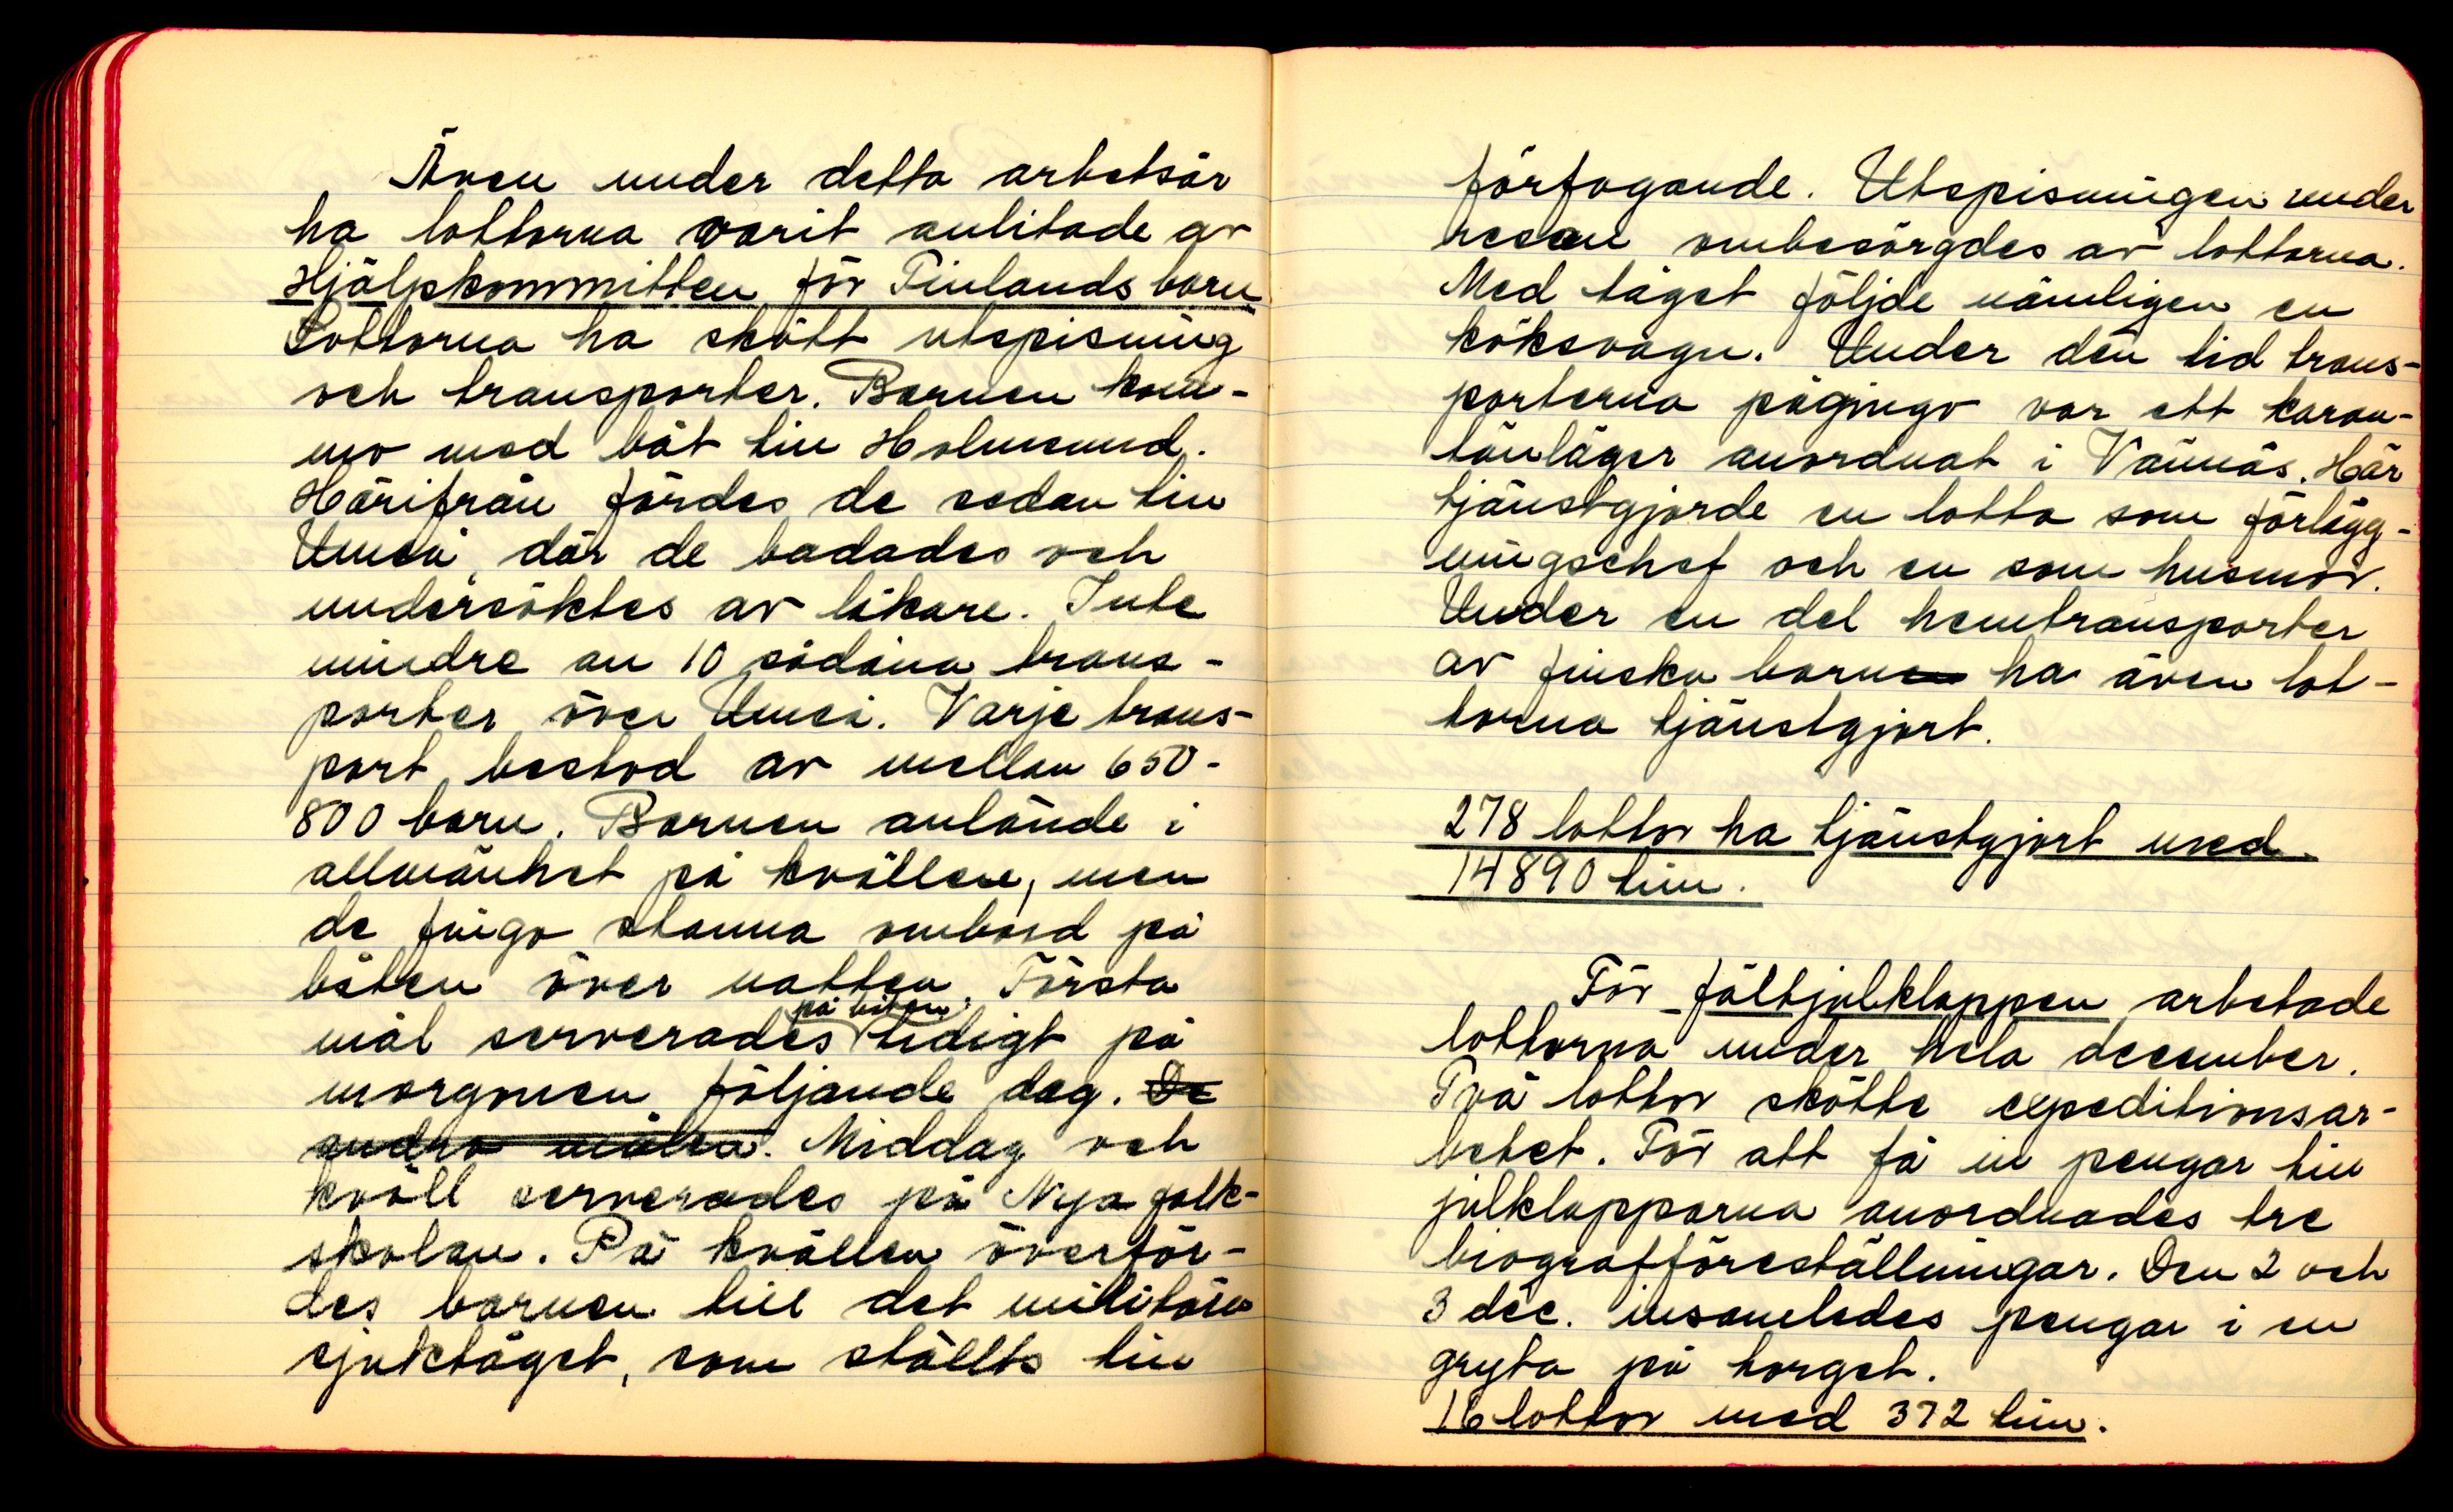 Även under detta arbetsår
ha lottorna varit anlitade av
Hjälpkommitten för Finlands barn
Lottorna ha skött utspisning
och transporter. Barnen kom-
mo med båt till Holmsund.
Härifrån fördes de sedan till
Umeå, där de badades och
undersöktes av läkare. Inte
mindre än 10 sådana trans-
porter över Umeå. Varje trans-
port bestod av mellan 650-
800 barn. Barnen anlände i
allmänhet på kvällen, men
de fingo stanna ombord på
båten över natten. Första
på båten
mål serverades tidigt på
morgonen följande dag. De
andra målen. Middag och
kväll serverades på Nya folk-
skolan. På kvällen överför-
des barnen till det militära
sjuktåget, som ställts till
förfogande. Utspisningen under
resan ombesörgdes av lottorna.
Med tåget följde nämligen en
köksvagn. Under den tid trans-
porterna pågingo var ett karan-
tänläger anordnat i Vännäs. Här
tjänstgjorde en lotta som förlägg-
ningschef och en som husmor.
Under en del hemtransporter
av finska barnen ha även lot-
torna tjänstgjort.
278 lottor ha tjänstgjort med
14890 tim.
För fältjulklappen arbetade
lottorna under hela december.
Två lottor skötte expeditionsar-
betet. För att få in pengar till
julklapparna anordnades tre
biografföreställningar. Den 2 och
3 dec. insamlades pengar i en
gryta på torget.
16 lottor med 372 tim.